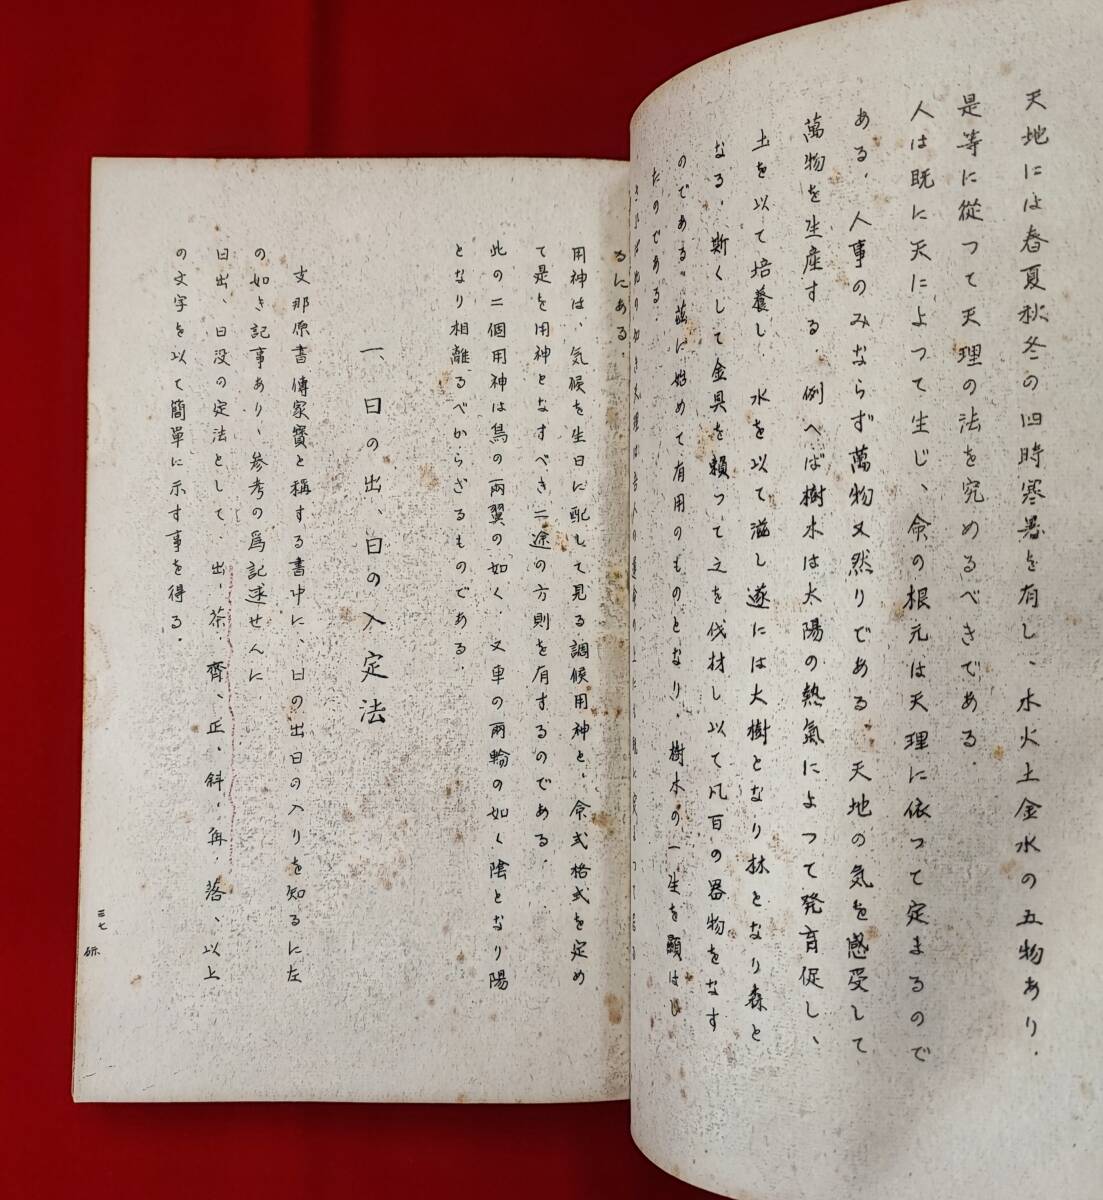 天地には春夏秋冬の四時寒暑を有し、水火土金水の五物あり、
是等に從つて天理の法を究めるべきである。
人は既に天によつて生じ、命の根元は天理に依つて定まるので
ある、人事のみならず萬物又然りである。天地の気を感受して
萬物を生産する。例へば樹木は太陽の熱氣によつて発育促し、
土を以て培養し、水を以て滋し遂には大樹となり林となり森と
なる、斯くして金具を頼つて之を伐材し以て凡百の器物をなす
のである。茲に始めて有用のものとなり、樹木の一生を顕はし
たのである。
るにある。
用神は、気候を生日に配して見る調候用神と、命式格式を定め
て是を用神となすべき二途の方則を有するのである。
此の二個用神は鳥の両翼の如く、又車の両輪の如く陰となり陽
となり相離るべからざるものである。
一、日の出、日の入定法
支那原書傳家寳と稱する書中に、日の出日の入りを知るに左
の如き記事あり、参考の爲記述せんに
日出、日没の定法として、出、茶、齊、正、斜、再、落、以上
の文字を以て簡単に示す事を得る。
三七
研